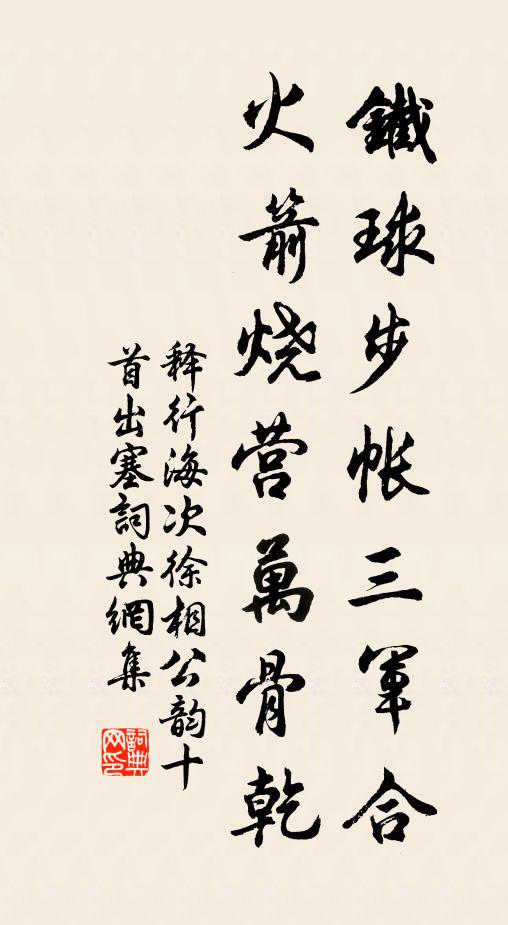 鐵球步帐三軍合
火箭烧营萬骨乾
释行海次徐相公韵十
首出塞詞典網集
詞典
网印